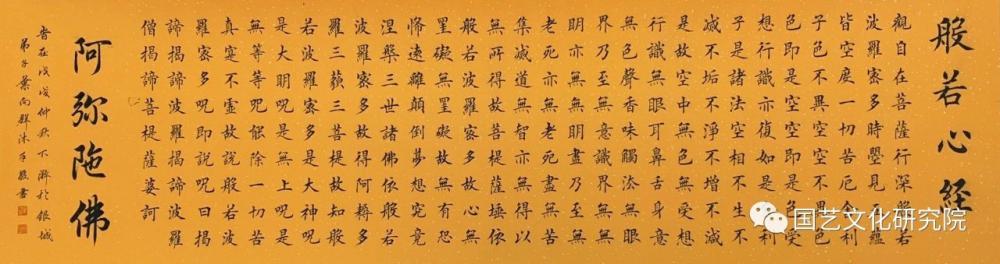 般若心経
觀自在菩薩行深般若
波羅密多時曌見五蘊
皆空度一切苦厄舍利
子色不異空空不異色
色即是空空即是色受
想行識亦復如是舍利
子是諸法空相不生不
滅不垢不淨不增不減
是故空中無色無受想
行識無眼耳鼻舌身意
無色聲香味觸法無眼
界乃至無意識界無無
明亦無無明盡乃至無
老死亦無老死盡無苦
集滅道無智亦無得以
無所得故菩提薩埵依
般若波羅密多故心無
罣礙無罣礙故無有恐
怖遠離顛倒夢想究竟
涅槃三世諸佛依般若
波羅密多故得阿耨多
羅三藐三菩提故知般
若波羅密多是大神呪
是大明呪是無上呪是
無等等呪能除一切苦
真實不虛故說般若波
羅密多呪即說呪曰揭
諦揭諦波羅揭諦波羅
僧揭諦菩提薩婆訶
阿弥陁佛
旹在戊戌仲秋下澣於銀城
弟子葉向群沐手敬書
国艺文化研究院